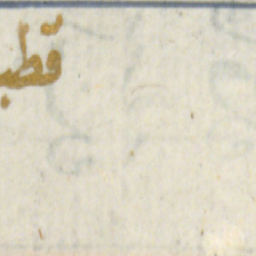 قطب